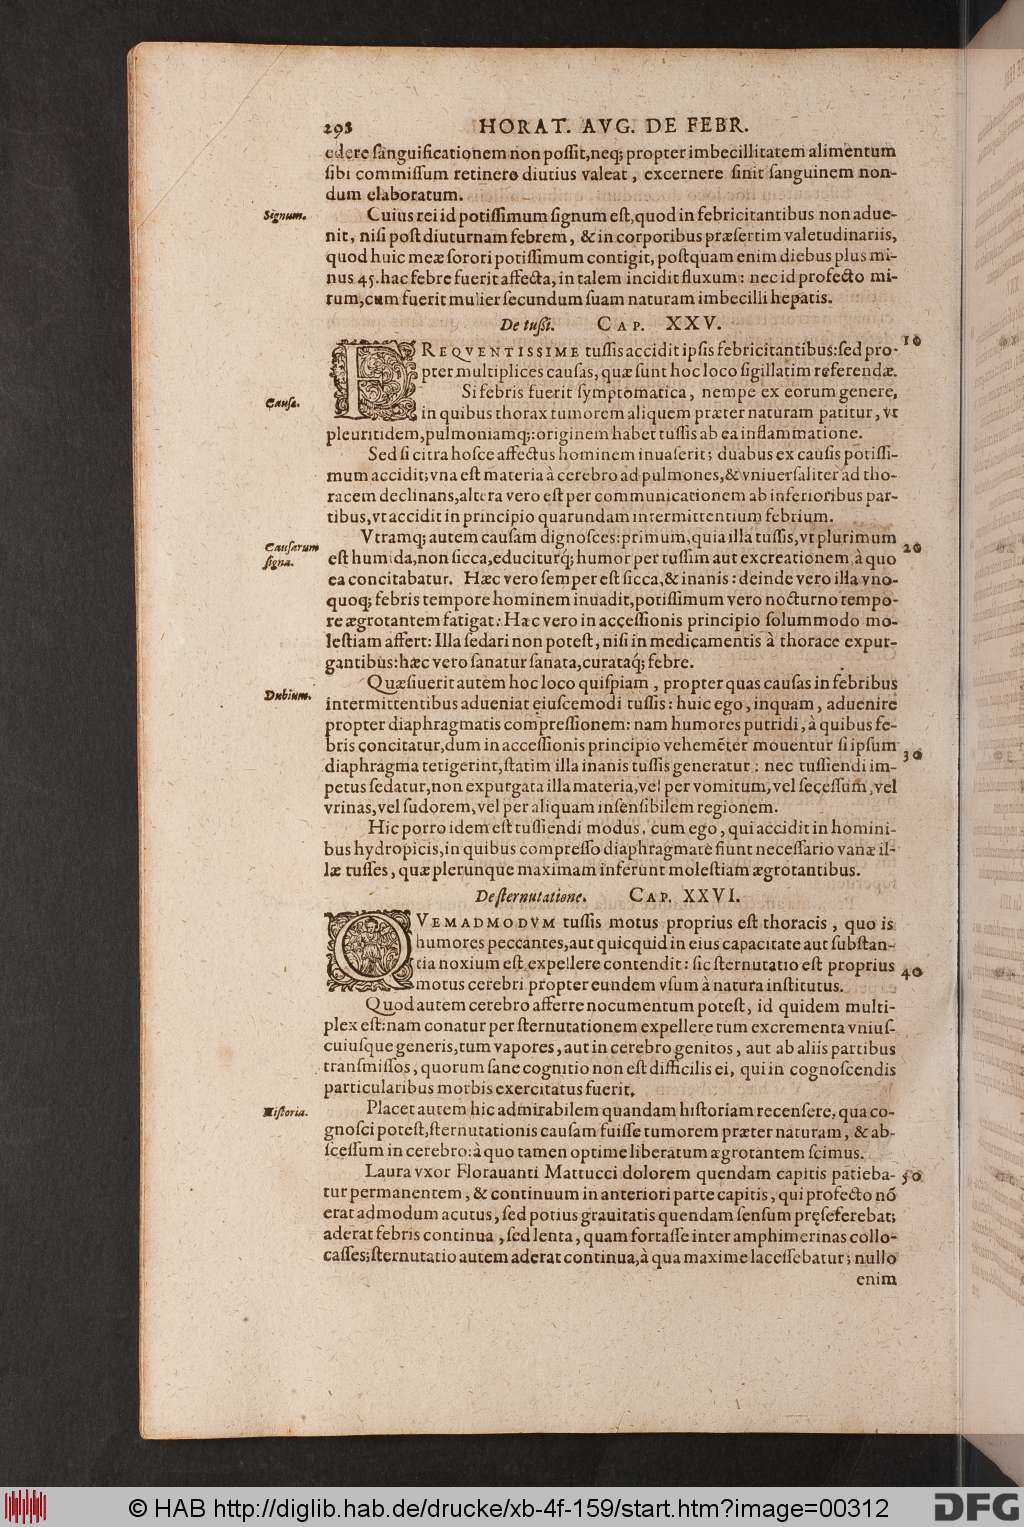 298 HORAT. AVG. DE FEBR.
edere ſanguificationem non poſſit, neq; propter imbecillitatem alimentum
ſibi commiſſum retinere diutius valeat, excernere ſinit ſanguinem non-
dum elaboratum.
Signum. Cuius rei id potiſſimum ſignum eſt, quod in febricitantibus non adue-
nit, niſi poſt diuturnam febrem, & in corporibus præſertim valetudinariis,
quod huic meæ ſorori potiſſimum contigit, poſtquam enim diebus plus mi-
nus 45. hac febre fuerit affecta, in talem incidit fluxum: nec id profecto mi-
rum, cum fuerit mulier ſecundum ſuam naturam imbecilli hepatis.
De tußi. CAP. XXV.
FREQVENTISSIME tuſſis accidit ipſis febricitantibus: ſed pro- 10
pter multiplices cauſas, quæ ſunt hoc loco ſigillatim referendæ.
Si febris fuerit ſymptomatica, nempe ex eorum genere,
Cauſæ. in quibus thorax tumorem aliquem præter naturam patitur, vt
pleuritidem, pulmoniamq;: originem habet tuſſis ab ea inflammatione.
Sed ſi citra hoſce affectus hominem inuaſerit; duabus ex cauſis potiſſi-
mum accidit; vna eſt materia à cerebro ad pulmones, & vniuerſaliter ad tho-
racem declinans, altera vero eſt per communicationem ab inferioribus par-
tibus, vt accidit in principio quarundam intermittentium febrium.
Cauſarum Vtramq; autem cauſam dignoſces: primum, quia illa tuſſis, vt plurimum
ſigna. eſt humida, non ſicca, educiturq; humor per tuſſim aut excreationem à quo 20
ea concitabatur. Hæc vero ſemper eſt ſicca, & inanis: deinde vero illa vno-
quoq; febris tempore hominem inuadit, potiſſimum vero nocturno tempo-
re ægrotantem fatigat: Hæc vero in acceſſionis principio ſolummodo mo-
leſtiam affert: Illa ſedari non poteſt, niſi in medicamentis à thorace expur-
gantibus: hæc vero ſanatur ſanata, curataq́; febre.
Quæſiuerit autem hoc loco quiſpiam, propter quas cauſas in febribus
Dubium. intermittentibus adueniat eiuſcemodi tuſſis: huic ego, inquam, aduenire
propter diaphragmatis compreſſionem: nam humores putridi, à quibus fe-
bris concitatur, dum in acceſſionis principio vehemẽter mouentur ſi ipſum
diaphragma tetigerint, ſtatim illa inanis tuſſis generatur: nec tuſſiendi im- 30
petus ſedatur, non expurgata illa materia, vel per vomitum, vel ſeceſſum, vel
vrinas, vel ſudorem, vel per aliquam inſenſibilem regionem.
Hic porro idem eſt tuſſiendi modus, cum ego, qui accidit in homini-
bus hydropicis, in quibus compreſſo diaphragmate fiunt neceſſario vanæ il-
læ tuſſes, quæ plerunque maximam inferunt moleſtiam ægrotantibus.
De ſternutatione. CAP. XXVI.
QVEMADMODVM tuſſis motus proprius eſt thoracis, quo is
humores peccantes, aut quicquid in eius capacitate aut ſubſtan-
tia noxium eſt expellere contendit: ſic ſternutatio eſt proprius 40
motus cerebri propter eundem vſum à natura inſtitutus.
Quod autem cerebro afferre nocumentum poteſt, id quidem multi-
plex eſt: nam conatur per ſternutationem expellere tum excrementa vniuſ-
cuiuſque generis, tum vapores, aut in cerebro genitos, aut ab aliis partibus
tranſmiſſos, quorum ſane cognitio non eſt difficilis ei, qui in cognoſcendis
particularibus morbis exercitatus fuerit.
Hiſtoria. Placet autem hic admirabilem quandam hiſtoriam recenſere, qua co-
gnoſci poteſt, ſternutationis cauſam fuiſſe tumorem præter naturam, & ab-
ſceſſum in cerebro: à quo tamen optime liberatum ægrotantem ſcimus.
Laura vxor Florauanti Mattucci dolorem quendam capitis patieba- 50
tur permanentem, & continuum in anteriori parte capitis, qui profecto nõ
erat admodum acutus, ſed potius grauitatis quendam ſenſum pręſeferebat;
aderat febris continua, ſed lenta, quam fortaſſe inter amphimerinas collo-
caſſes; ſternutatio autem aderat continua, à qua maxime laceſſebatur; nullo
enim
© HAB http://diglib.hab.de/drucke/xb-4f-159/start.htm?image=00312 DFG